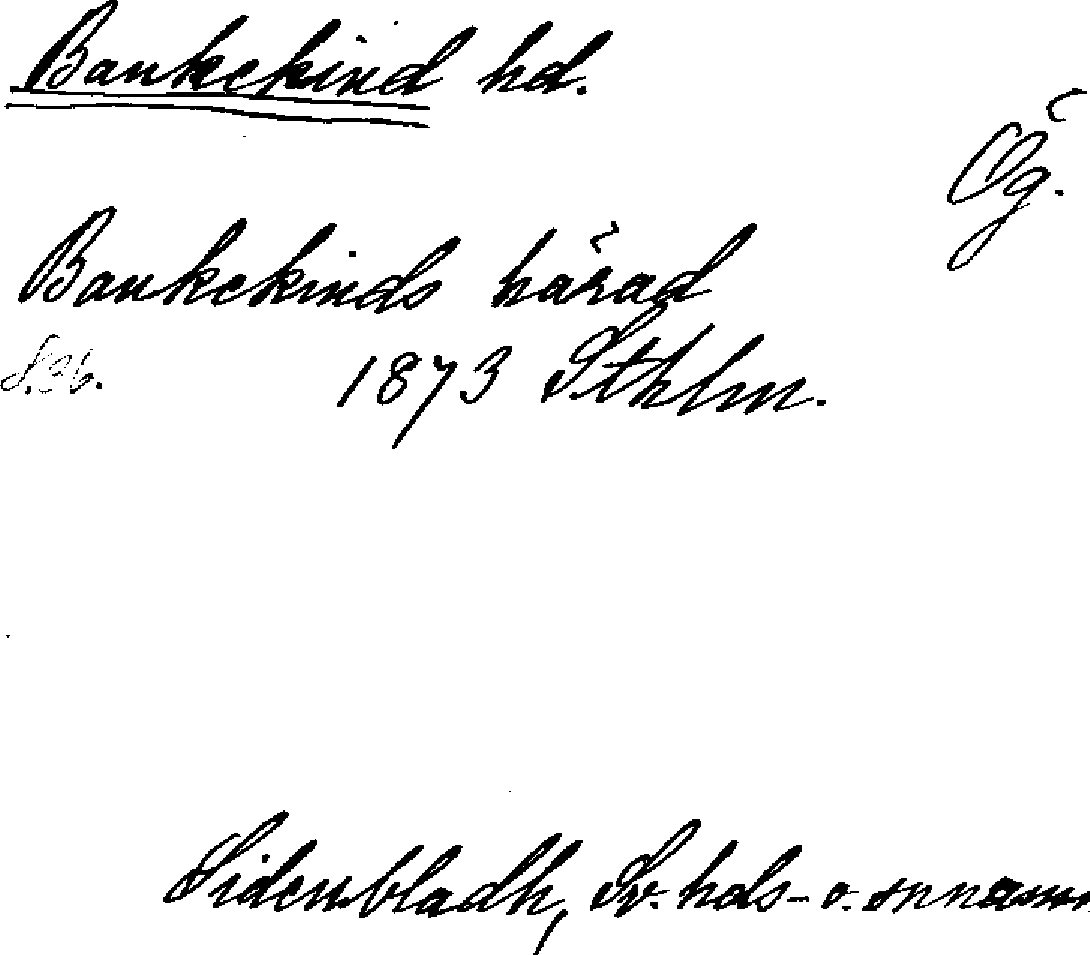 Bankekind hd.
Ög.
Bankekinds härad
S.36. 1873 Sthlm.
Sidenbladh, Sv. hds- o. snnamn